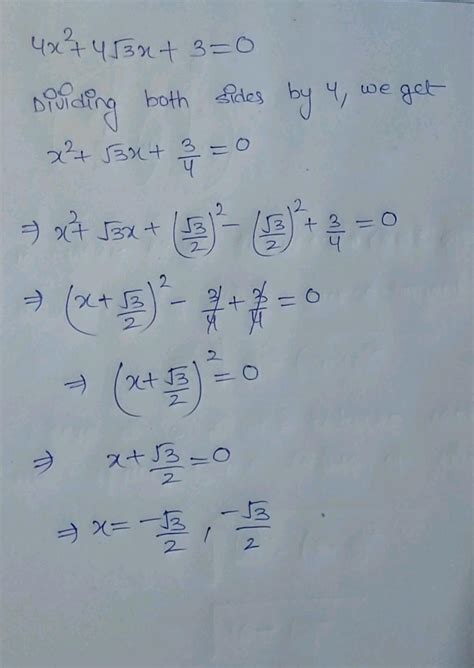 4x²+4√3x+3=0
Dividing both sides by 4, we get
x²+√3x+3/4=0
⇒ x²+√3x+(√3/2)²-(√3/2)²+3/4=0
⇒ (x+√3/2)²-3/4+3/4=0
⇒ (x+√3/2)²=0
⇒ x+√3/2=0
⇒ x=-√3/2,-√3/2